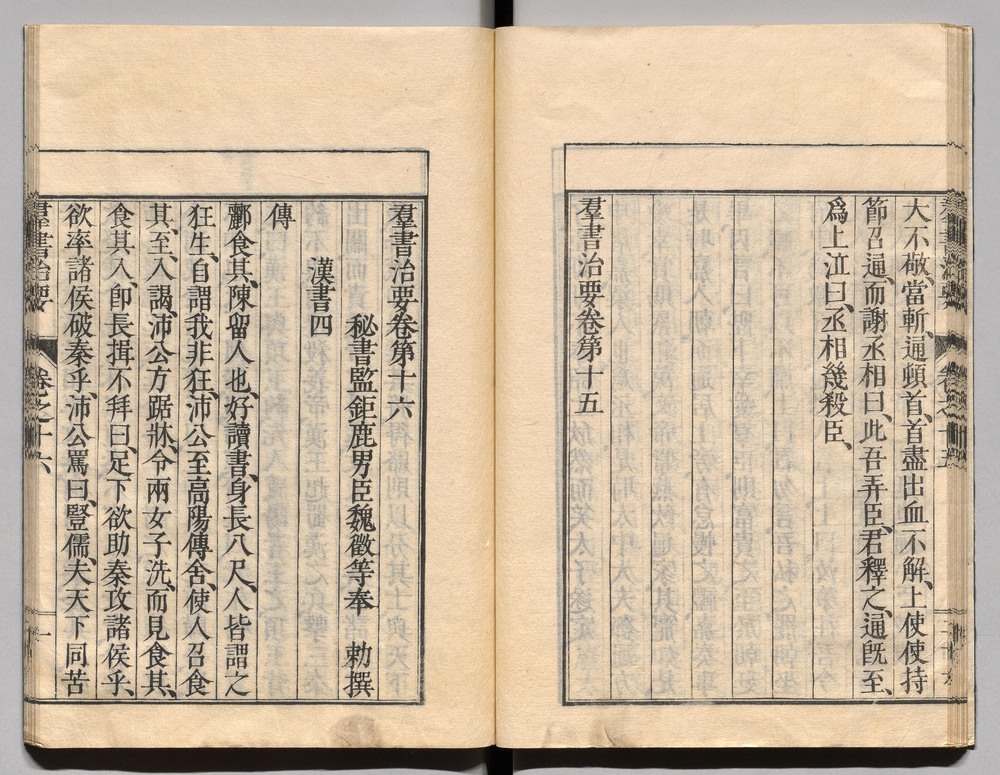 大不敬、當斬、通頓首、首盡出血、不解、上使使持
節召通、而謝丞相曰、此吾弄臣、君釋之、通旣至、
爲上泣曰、丞相幾殺臣、
羣書治要卷第十五
羣書治要卷第十六
秘書監鉅鹿男臣魏徵等奉　勅撰
漢書四
傳
酈食其、陳留人也、好讀書、身長八尺、人皆謂之
狂生、自謂我非狂、沛公至高陽傳舍、使人召食
其、至、入謁、沛公方踞牀、令兩女子洗、而見食其、
食其入、卽長揖不拜曰、足下欲助秦攻諸侯乎、
欲率諸侯破秦乎、沛公罵曰、豎儒、夫天下同苦
羣書治要　卷之十六　一